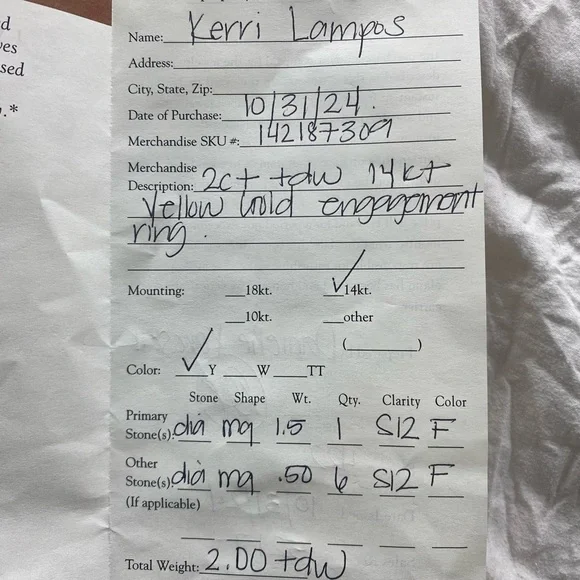 d
ves
sed
.*
Name: Kerri Lampos
Address:
City, State, Zip:
Date of Purchase: 10/31/24.
Merchandise SKU #: 142187309
Merchandise
Description: 2ct tdw 14kt
Yellow Gold engagement
ring.
Mounting: __18kt. ✓14kt.
__10kt. __other
(________)
Color: ✓Y __W __TT
Stone Shape Wt. Qty. Clarity Color
Primary
Stone(s): dia mq 1.5 1 SI2 F
Other
Stone(s): dia mq .50 6 SI2 F
(If applicable)
Total Weight: 2.00 tdw